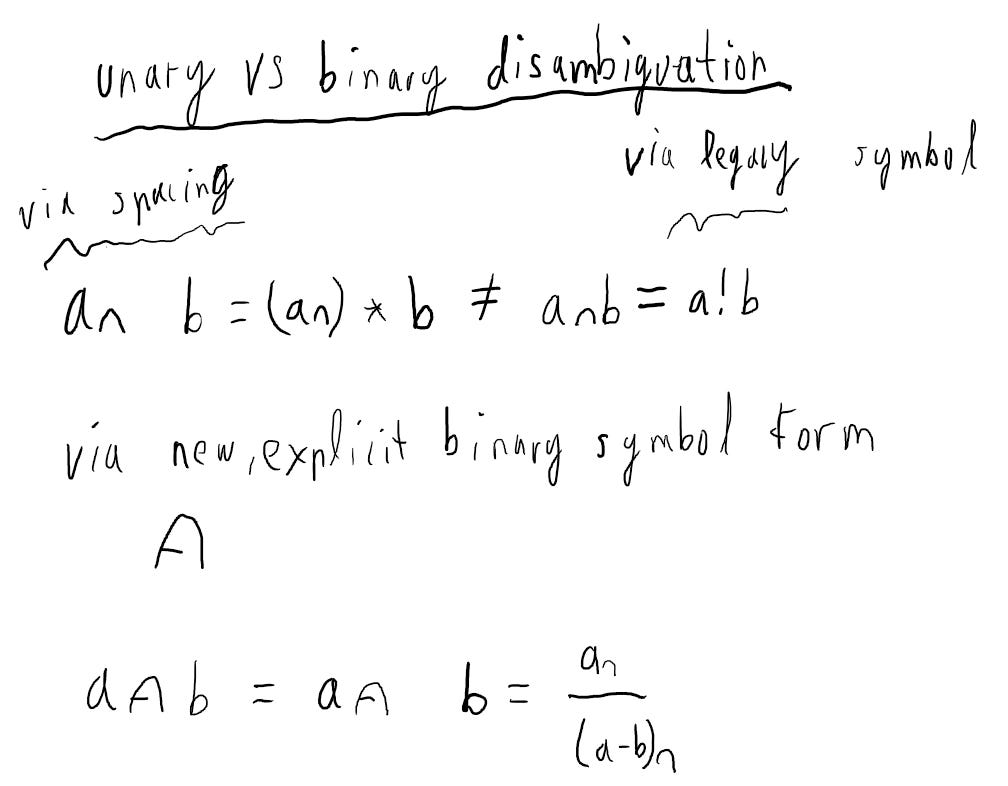 unary vs binary disambiguation
via spacing
via legacy symbol
a∩ b = (a∩) * b ≠ a∩b = a!b
via new, explicit binary symbol form
A
a A b = a A b = a∩ / (a-b)∩